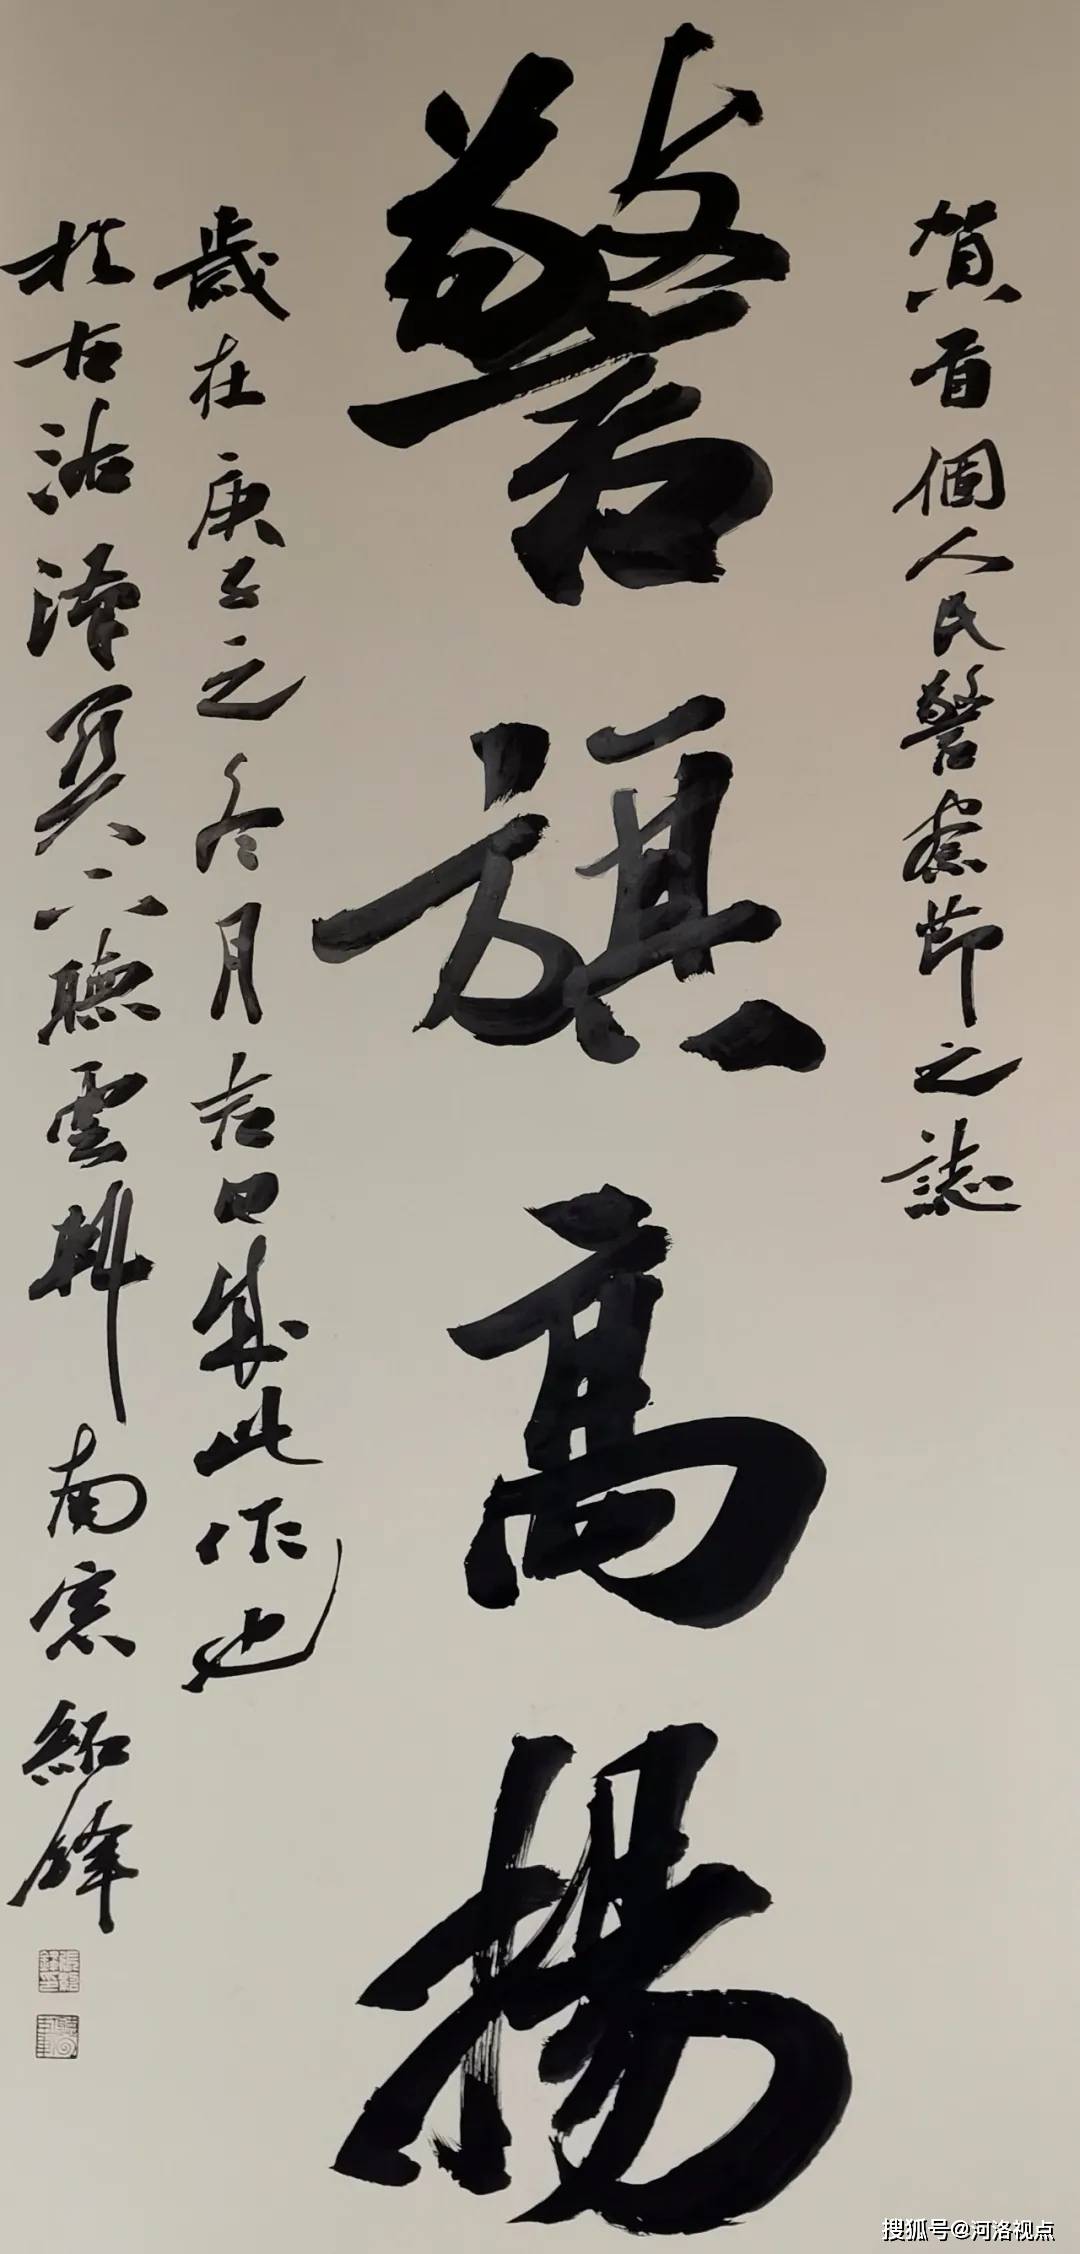 賀首個人民警察節之誌
警旗高揚
歲在庚子之冬月吉日成此作也
於古沽津 聽雲軒南窓紹鋒
搜狐号@河洛视点